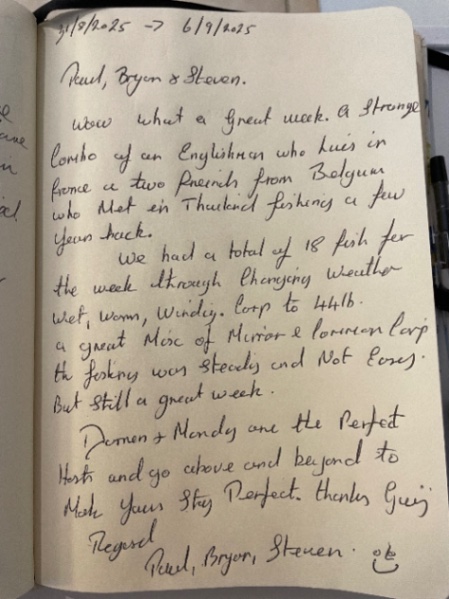 31/8/2025 -> 6/9/2025
Paul, Bryan & Steven.
Wow what a Great week. a Strange
Combo of an Englishman who lives in
france & two freinds from Belgium
who Met in Thailand fishing a few
years back.
We had a total of 18 fish for
the week through Changing Weather
Wet, Warm, Windy. Carp to 44lb.
a great Mixc of Mirror & Common Carp
th fishing was steady and Not Easy.
But still a great week.
Damen & Mandy are the Perfect
Hosts and go above and beyond to
Make your Stay Perfect. thanks Guys
Regard
Paul, Bryan, Steven.